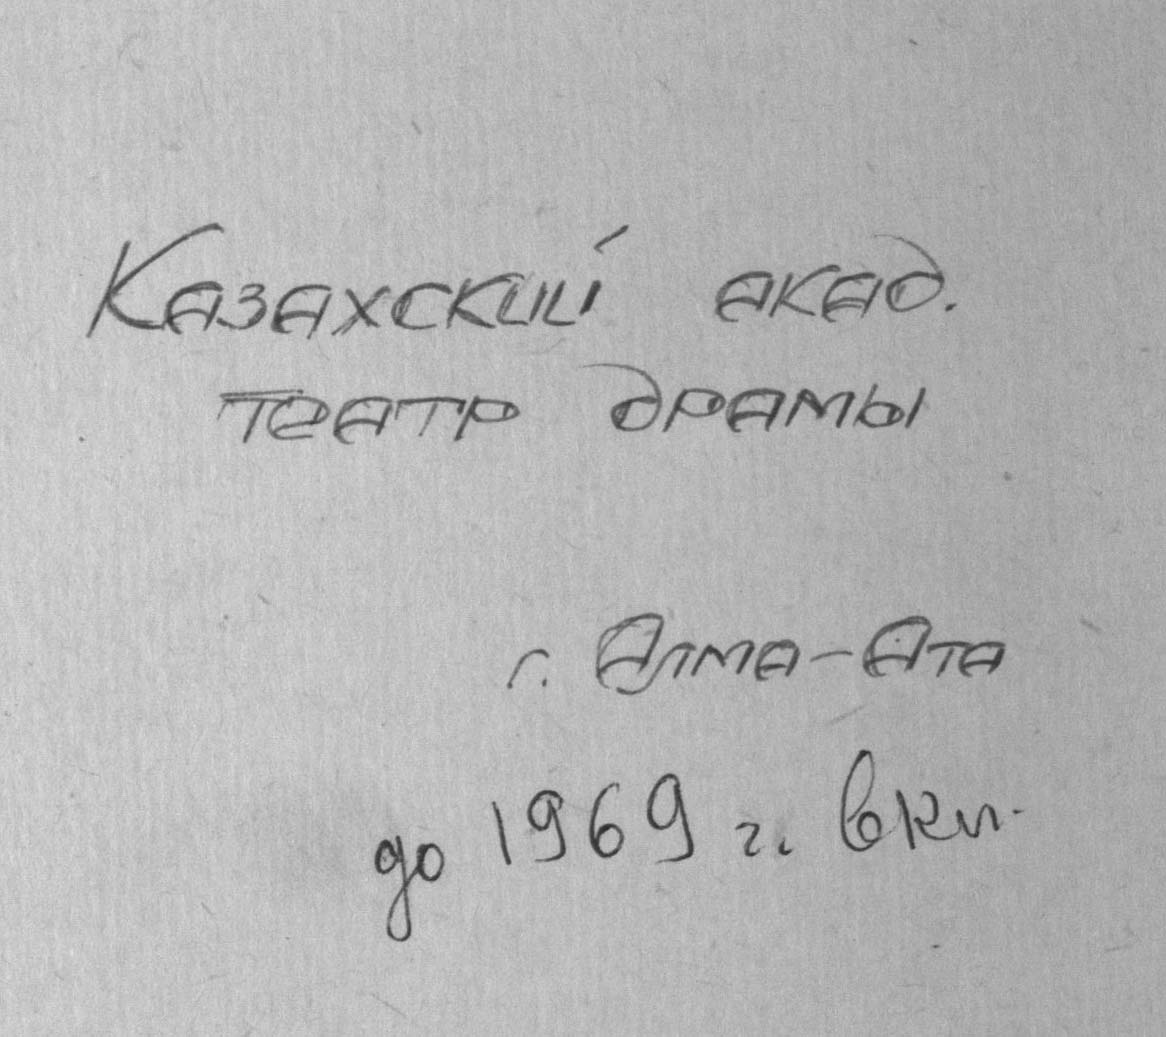 Казахский акад.
театр драмы
г. Алма-Ата
до 1969 г. вкл.